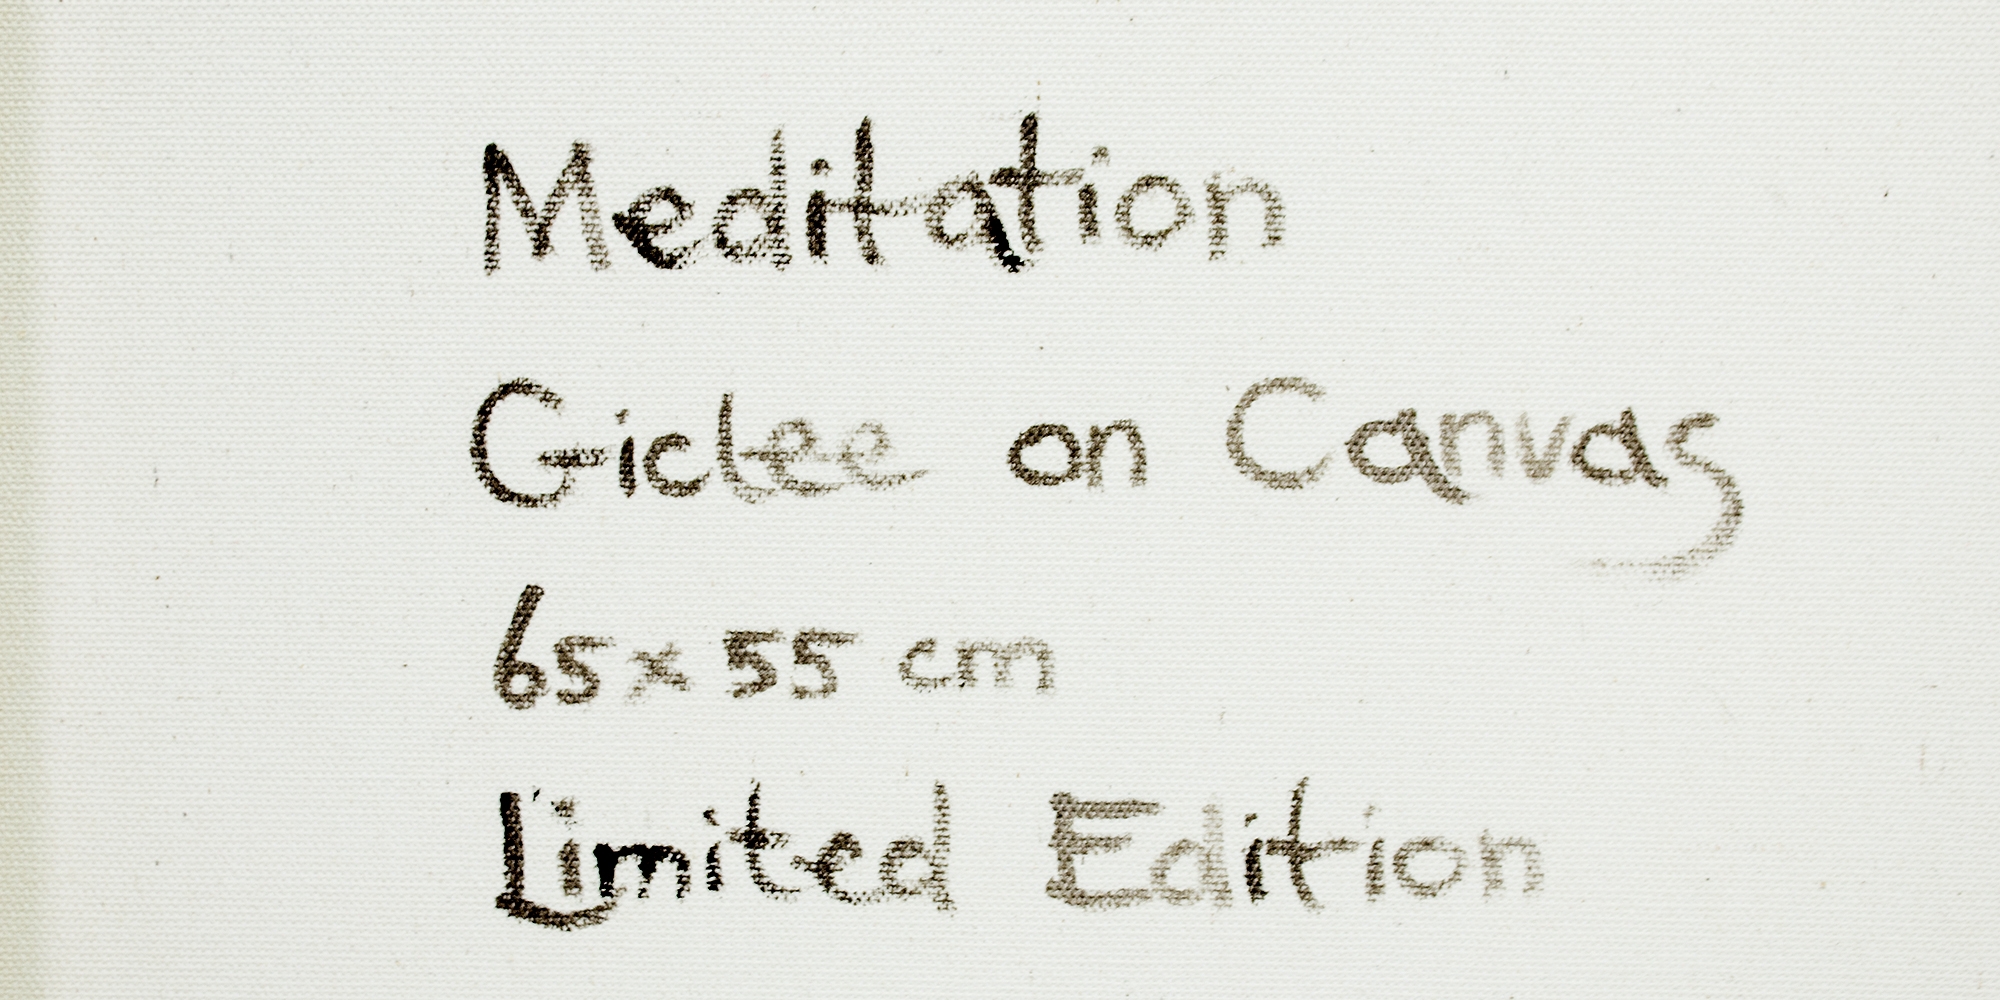 Meditation
Giclee on Canvas
65x55 cm
Limited Edition